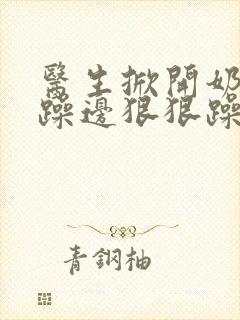 醫生掀開奶
躁邊狠狠躁
青銅柚